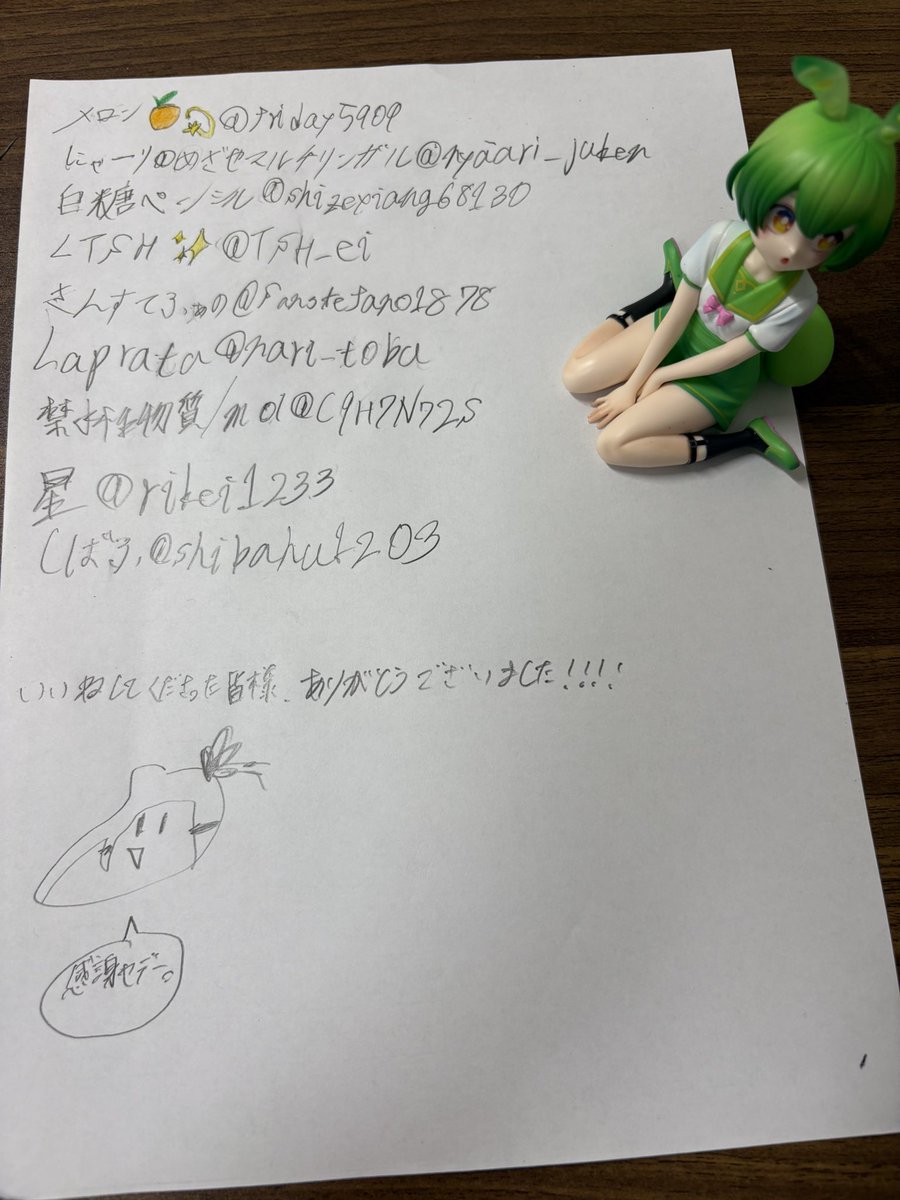 メロン🍊💫@friday5909
にゃーり@めざせマルチリンガル@nyaari_juken
白糖ペンシル@shizexiang68130
LTSH✨@TSH_ei
さんすてふぁの@Sanstefano1878
Laprata@nari_toba
禁妹金物質/mol@C9H7N72S
星@rikei1233
しばふ@shibahu1203
いいねしてくださった皆様、ありがとうございました!!!!
感謝セデー。